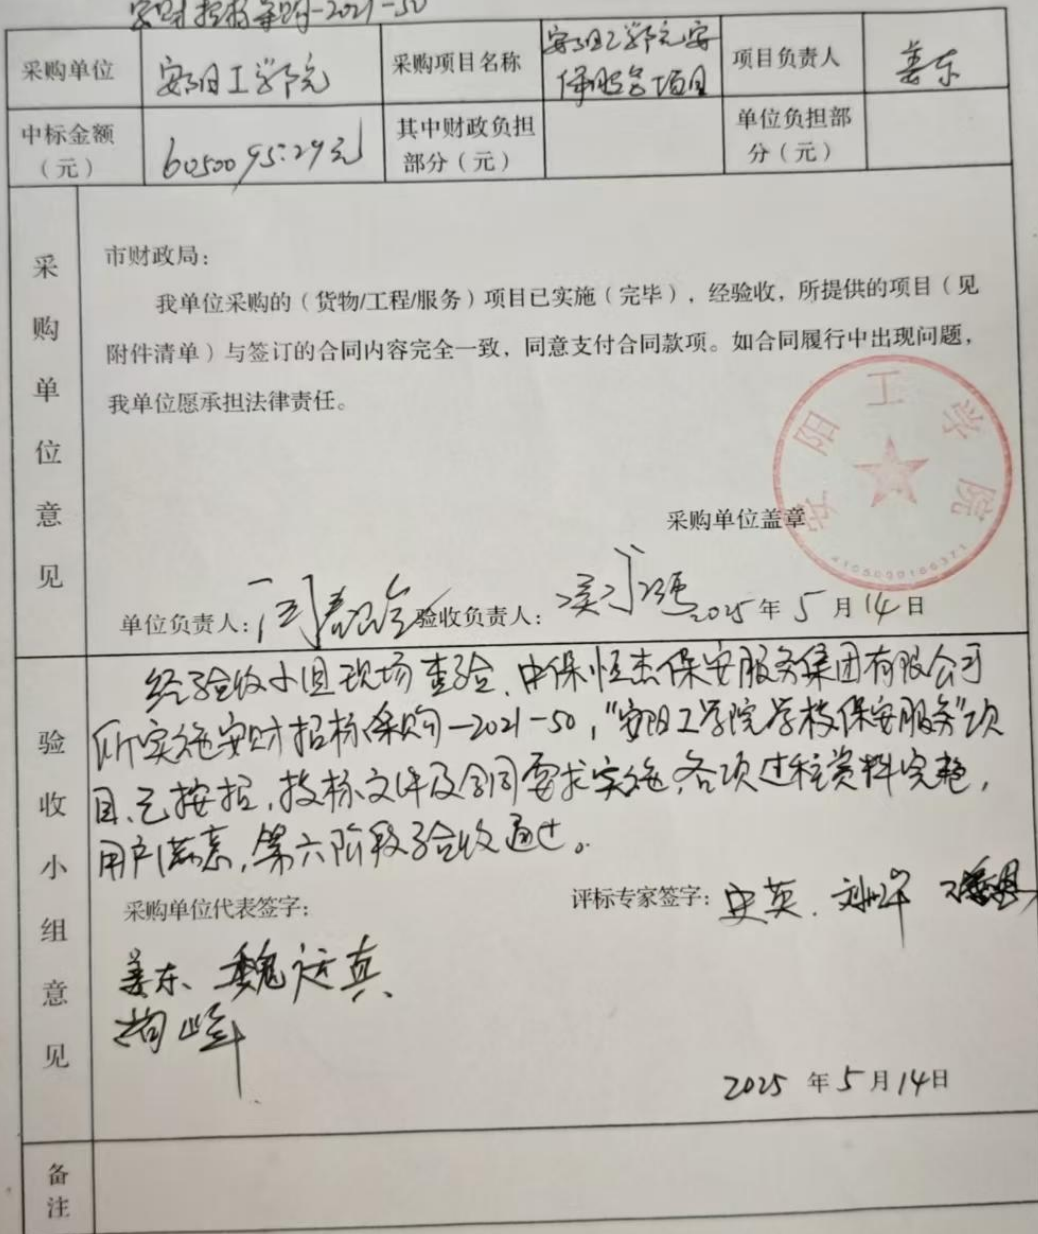 安财招标采购-2021-50
采购单位 安阳工学院 采购项目名称 安阳工学院安保服务项目 项目负责人 姜东
中标金额（元） 6050095.29元 其中财政负担部分（元） 单位负担部分（元）
采购单位意见
市财政局：
我单位采购的（货物/工程/服务）项目已实施（完毕），经验收，所提供的项目（见
附件清单）与签订的合同内容完全一致，同意支付合同款项。如合同履行中出现问题，
我单位愿承担法律责任。
安阳工学院
采购单位盖章
单位负责人： 验收负责人： 2025年5月14日
验收小组意见
经验收小组现场查验，中保恒杰保安服务集团有限公司
所实施安财招标采购-2021-50，“安阳工学院学校保安服务”项
目，已按招，投标文件及合同要求实施，各项过程资料完整，
用户满意，第六阶段验收通过。
采购单位代表签字： 评标专家签字：史英．
姜东、魏 真
2025年5月14日
备注